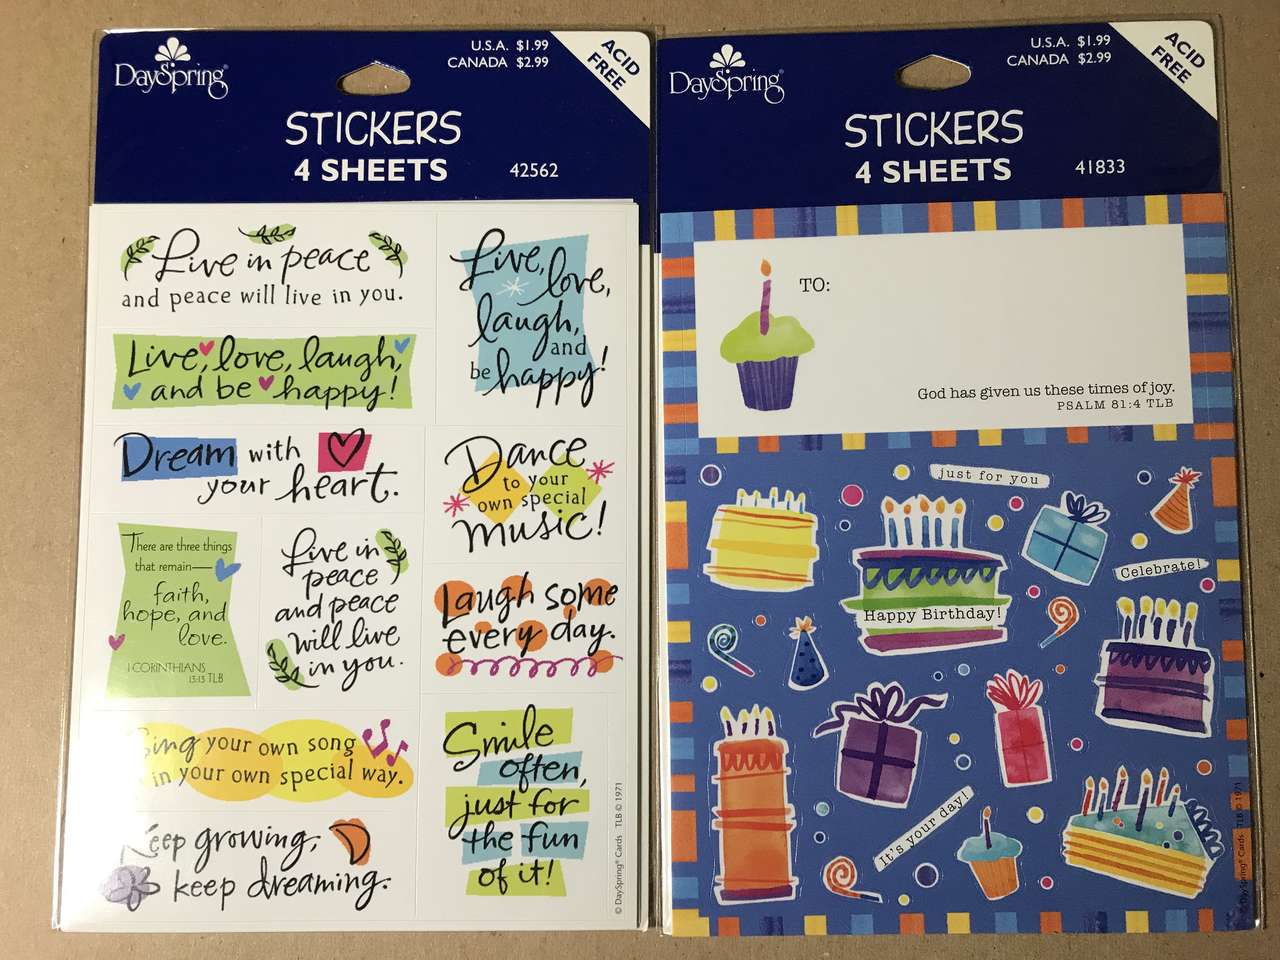 DaySpring®
U.S.A. $1.99
CANADA $2.99
ACID
FREE
STICKERS
4 SHEETS
42562
Live in peace
and peace will live in you.
Live, love,
laugh,
and
be happy!
Live, love, laugh,
and be happy!
Dream with
your heart.
Dance
to your
own special
music!
There are three things
that remain—
faith,
hope, and
love.
1 CORINTHIANS
13:13 TLB
Live in
peace
and peace
will live
in you.
Laugh some
every day.
Sing your own song
in your own special way.
Smile
often,
just for
the fun
of it!
Keep growing,
keep dreaming.
© DaySpring® Cards TLB © 1971
DaySpring®
U.S.A. $1.99
CANADA $2.99
ACID
FREE
STICKERS
4 SHEETS
41833
TO:
God has given us these times of joy.
PSALM 81:4 TLB
just for you
Celebrate!
Happy Birthday!
It's your day!
© DaySpring® Cards TLB © 1971